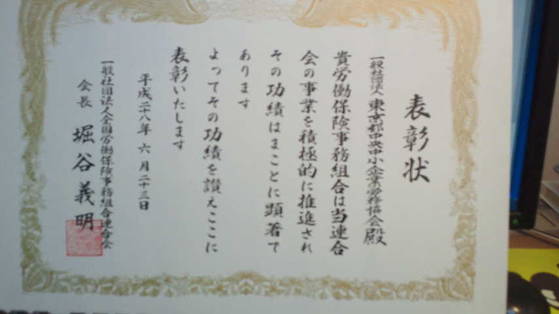 表彰状
一般社団法人 東京都中央中小企業労務協会殿
貴労働保険事務組合は当連合
会の事業を積極的に推進され
その功績はまことに顕著で
あります
よってその功績を讃えここに
表彰いたします
平成二十八年 六月二十三日
一般社団法人全国労働保険事務組合連合会
会長 堀谷義明